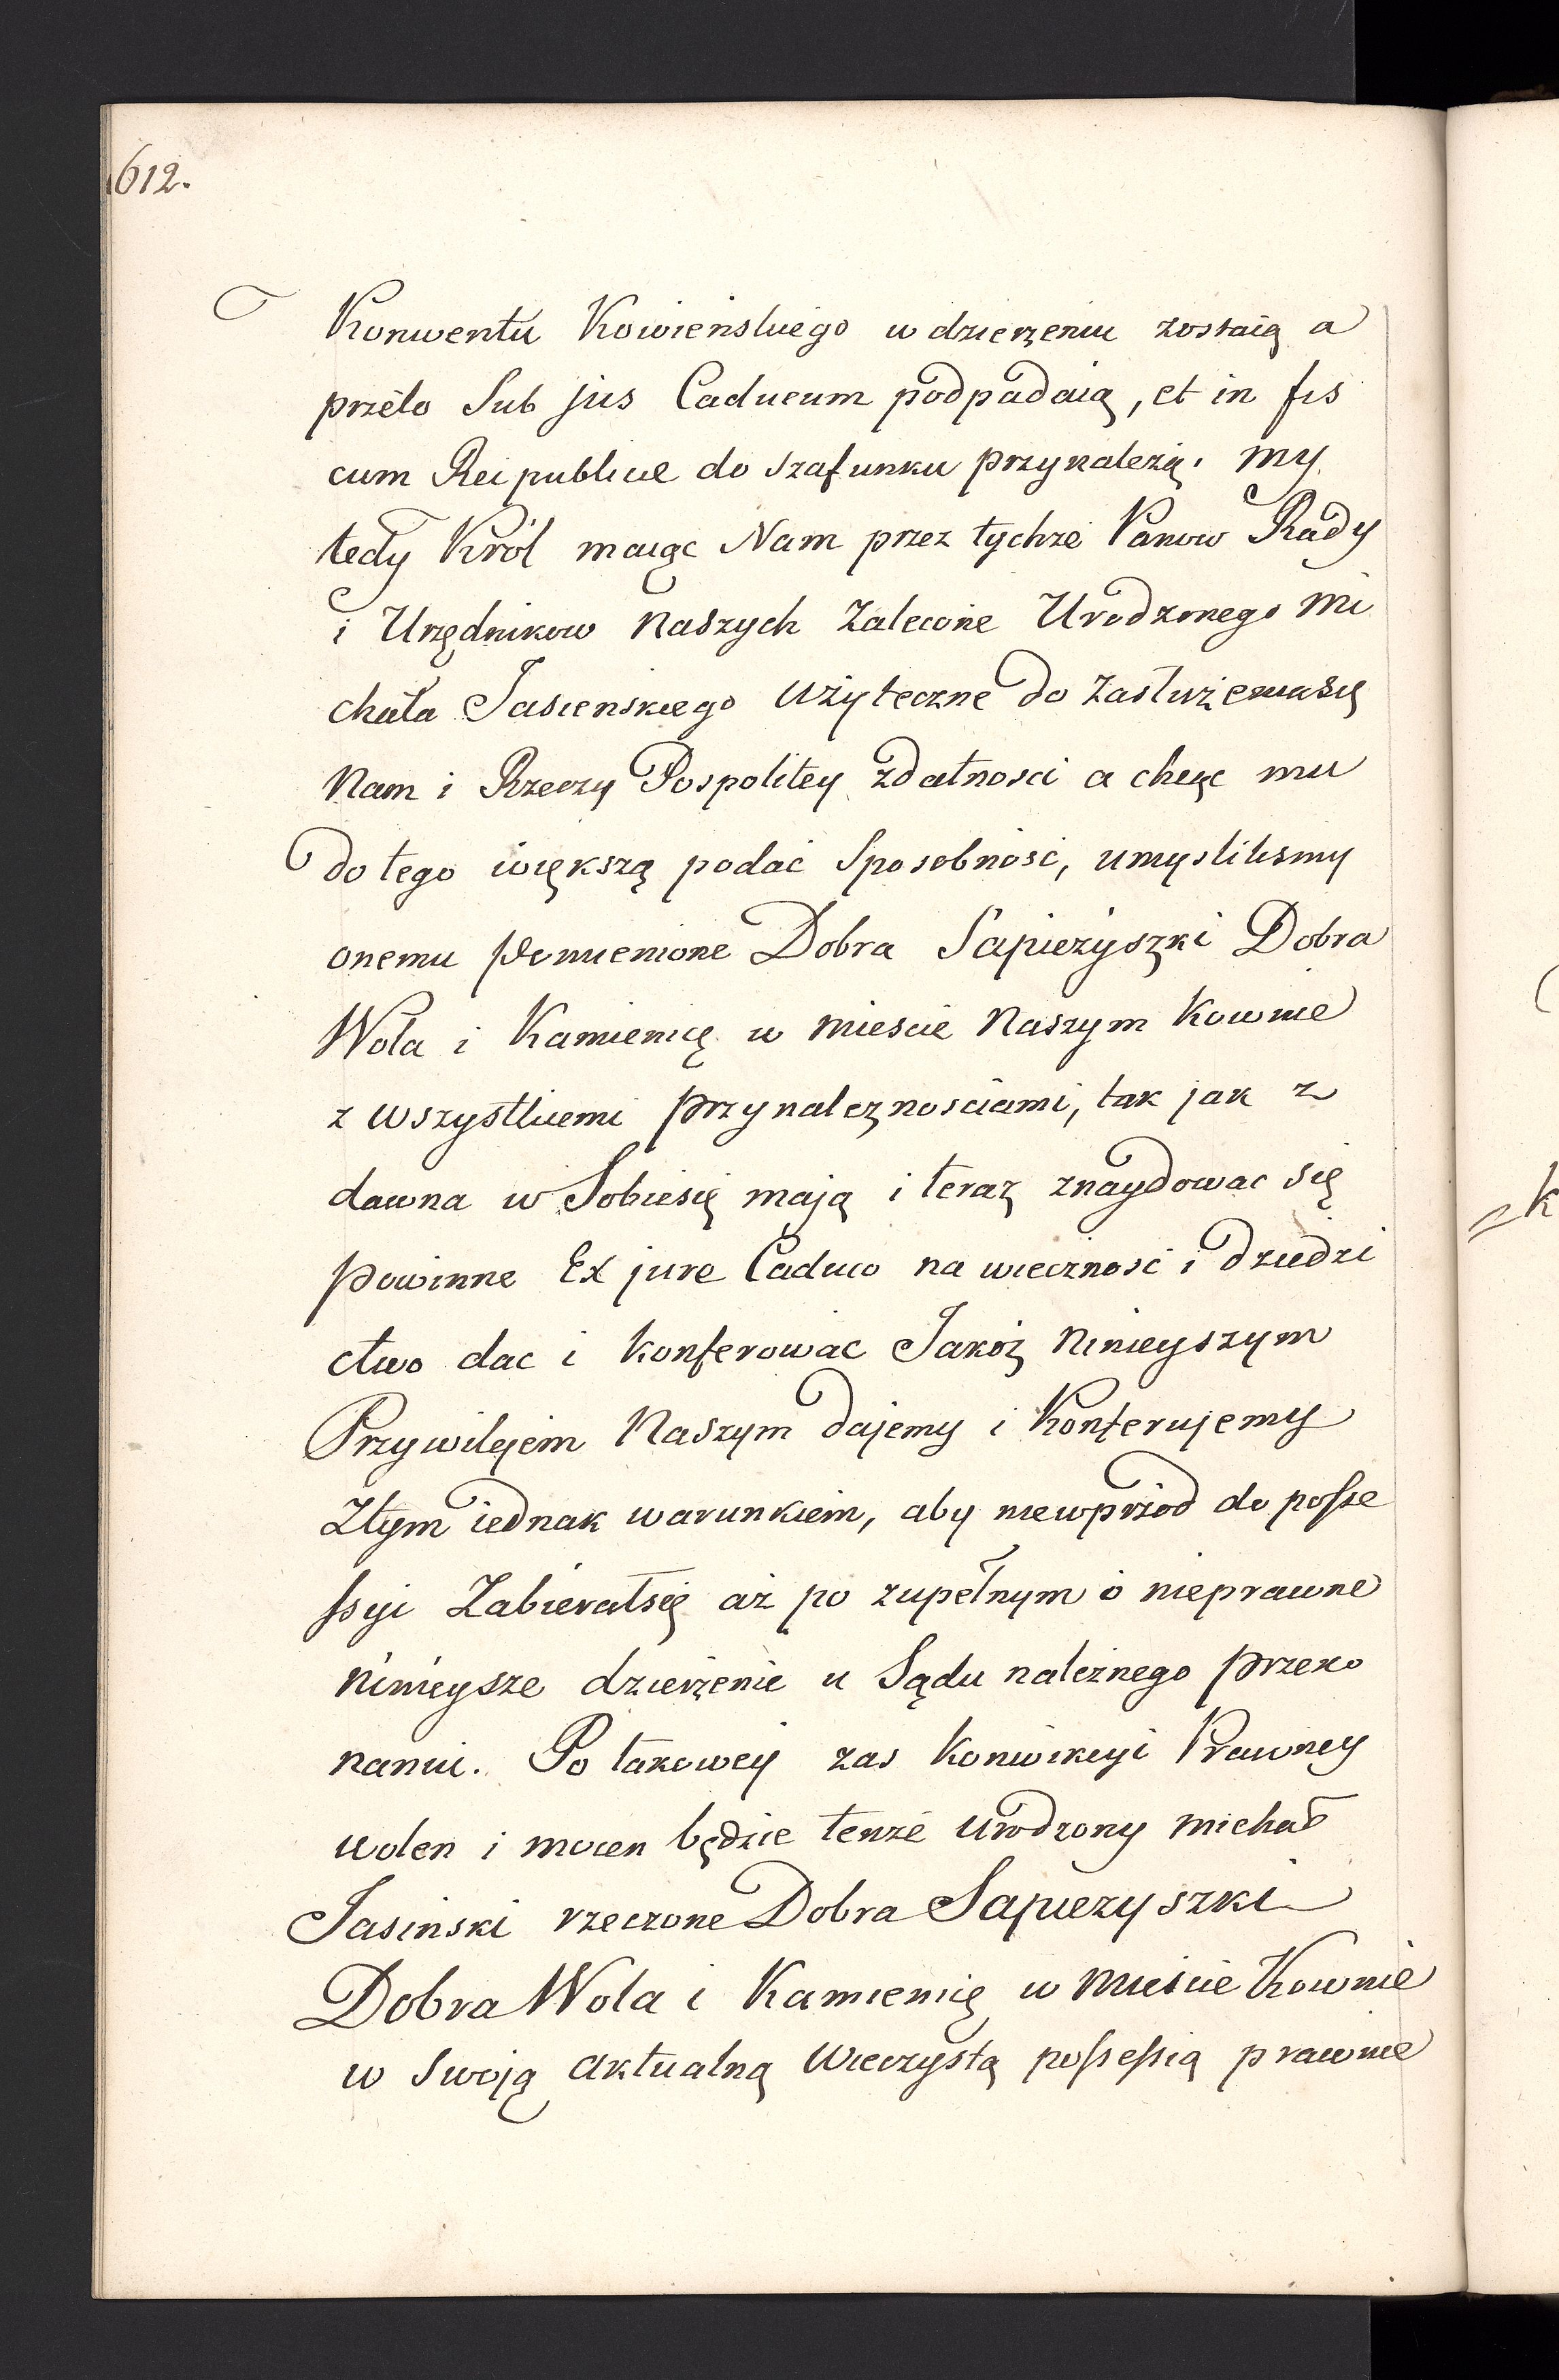 612.
Konwentu Kowienskiego w dzierzeniu zostaią a
przeto Sub jus Caducum podpadaią, et in fis
cum Rei publicæ do szafunku przynalezą. my
tedy Król maiąc Nam przez tychże Panow Rady
i Urzędnikow Naszych Zalecone Urodzonego Mi
chała Jasienskiego użyteczne do zasłużeniasię
Nam i Rzeczy Pospolitey zdatnosci a chcąc mu
do tego większą podać Sposobność, umyslilismy
onemu pomienione Dobra Sapieżyszki Dobra
Wola i Kamienicę w Miescie Naszym Kownie
z wszystkiemi przynależnosciami, tak jak z
dawna w Sobiesię mają i teraz znaydowac się
powinne Ex jure Caduco na wieczność i dziedzi
ctwo dac i konferowac Jakoż Ninieyszym
Przywilejem Naszym dajemy i Konferujemy
Ztym iednak warunkiem, aby niewprzod do posse
ssyi Zabierałsię aż po zupełnym o nieprawne
ninieysze dzierżenie u Sądu należnego przeko
naniu. Po takowey zas Konwikcyi Prawney
wolen i mocen będzie tenże urodzony Michał
Jasinski rzeczone Dobra Sapiezyszki
Dobra Wola i Kamienicę w Miescie Kownie
w Swoją aktualną wieczystą possessią prawnie
k